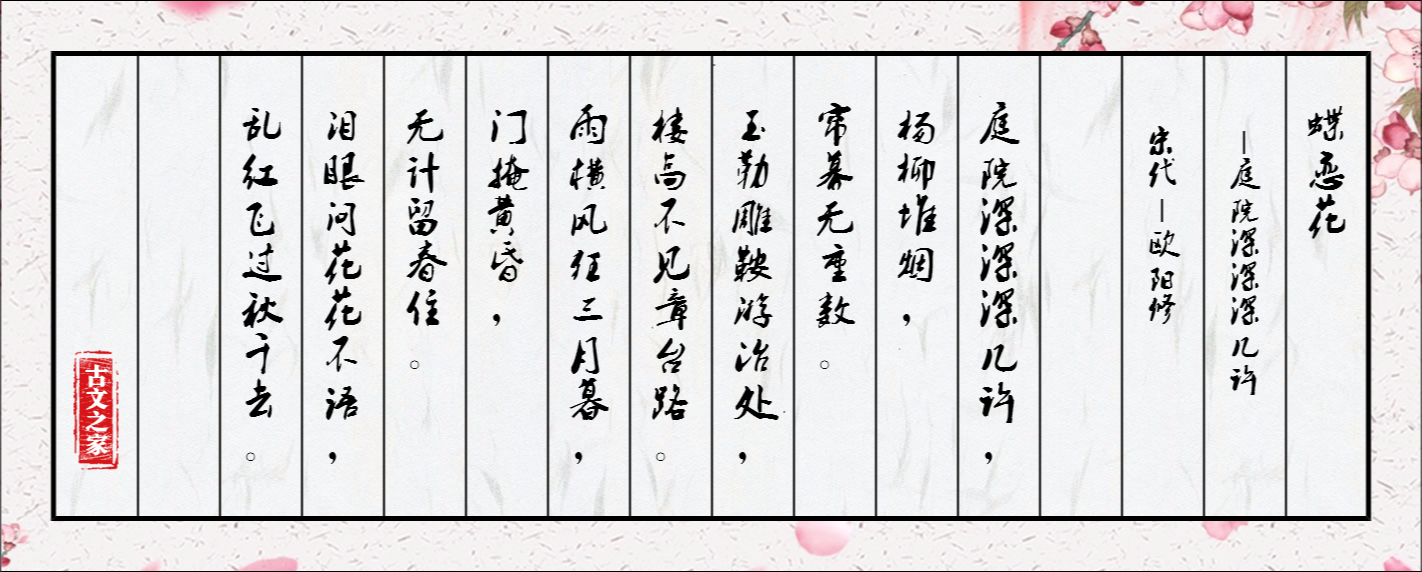 蝶恋花
—庭院深深深几许
宋代—欧阳修
庭院深深深几许，
杨柳堆烟，
帘幕无重数。
玉勒雕鞍游冶处，
楼高不见章台路。
雨横风狂三月暮，
门掩黄昏，
无计留春住。
泪眼问花花不语，
乱红飞过秋千去。
古文之家